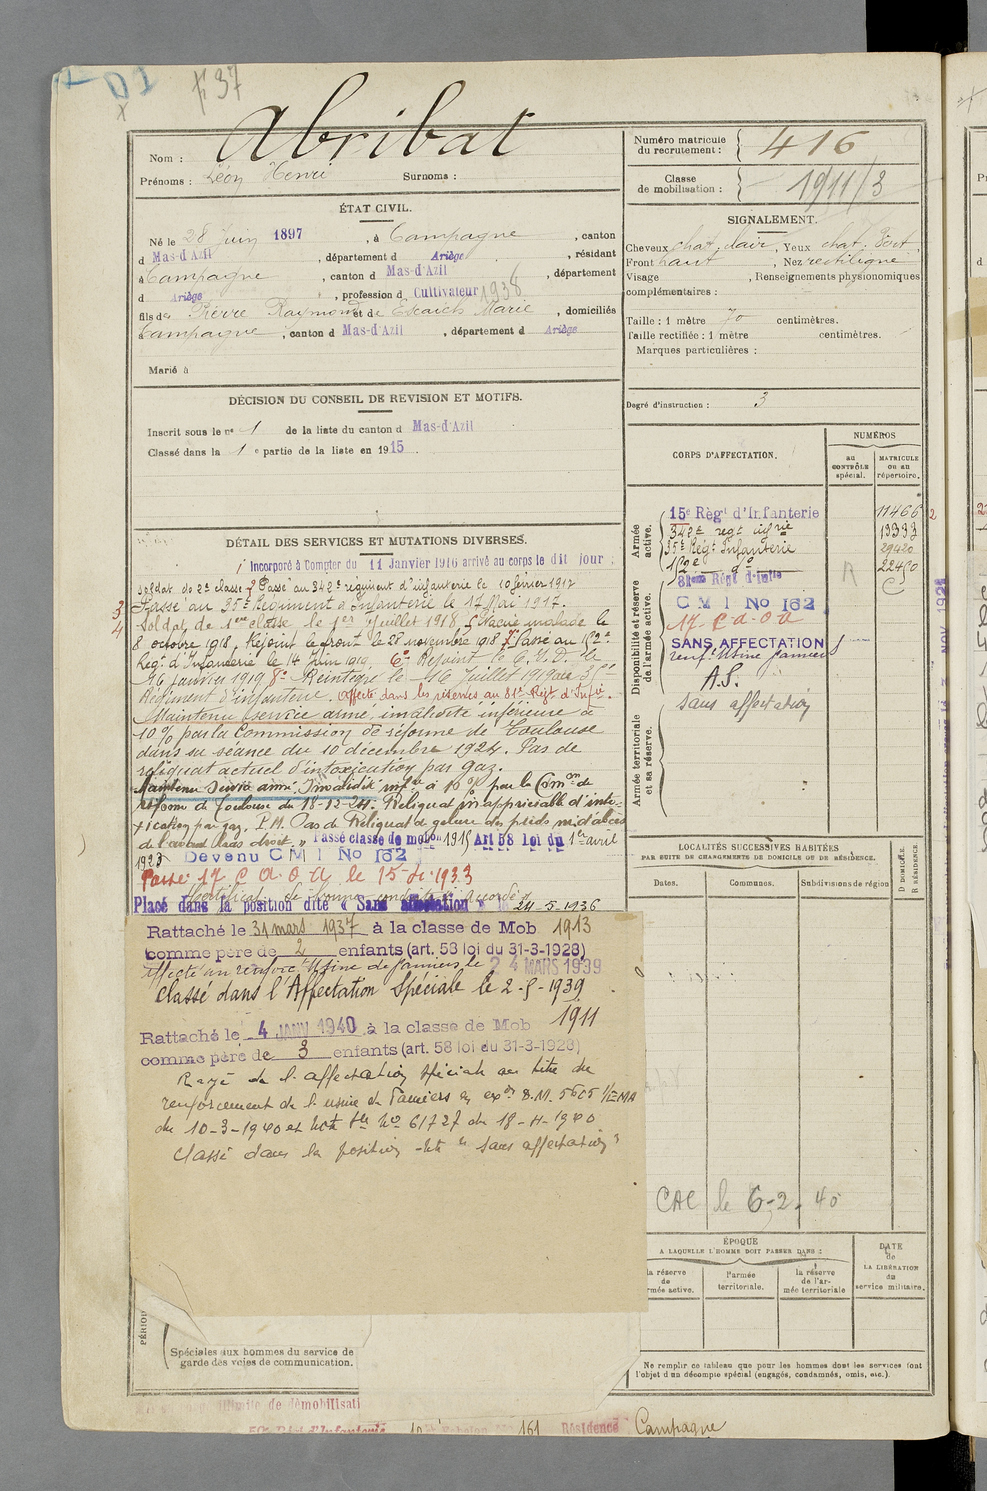 D1
F 37
Nom : Abribat
Prénoms : Léon Henri Surnoms :
Numéro matricule du recrutement : 416
Classe de mobilisation : 1911/3
ÉTAT CIVIL.
Né le 28 Juin 1897, à Campagne, canton
d Mas-d'Azil, département d Ariège, résidant
à Campagne, canton d Mas-d'Azil, département
d Ariège, profession d Cultivateur 1938
fils de Pierre Raymond et de Escaich Marie, domiciliés
à Campagne, canton d Mas-d'Azil, département d Ariège
Marié à
SIGNALEMENT.
Cheveux chat. clair, Yeux chat. vert,
Front haut, Nez rectiligne
Visage , Renseignements physionomiques
complémentaires :
Taille : 1 mètre 70 centimètres.
Taille rectifiée : 1 mètre centimètres.
Marques particulières :
Degré d'instruction : 3
DÉCISION DU CONSEIL DE REVISION ET MOTIFS.
Inscrit sous le n° 1 de la liste du canton d Mas-d'Azil
Classé dans la 1e partie de la liste en 1915.
DÉTAIL DES SERVICES ET MUTATIONS DIVERSES.
Incorporé à Compter du 11 Janvier 1916 arrivé au corps le dit jour ;
soldat de 2e classe Passé au 342e régiment d'infanterie le 10 février 1917
Passé au 35e Régiment d'infanterie le 17 Mai 1917.
Soldat de 1ère classe le 1er Juillet 1918. Evacué malade le
8 octobre 1918. Rejoint le front le 28 novembre 1918. Passé au 152e
Régt d'Infanterie le 14 Juin 1919. Rejoint le C.I.D. le
16 janvier 1919 8° Réintégré le 16 juillet 1919 au 35e
Régiment d'infanterie. Affecté dans les réserves au 81e Régt d'Infie.
Maintenu service armé, invalidité inférieure à
10% par la Commission de réforme de Toulouse
dans sa séance du 10 décembre 1924. Pas de
reliquat actuel d'intoxication par gaz.
Maintenu service armé. Invalidité infre à 10% par la Comon de
réforme de Toulouse du 18-12-24. Reliquat inappréciable d'into-
xication par gaz. P.M. Pas de Reliquat de gelure des pieds ni d'abcès
de l'avant bras droit. Passé classe de mobon 1915 Art 58 loi du 1er avril
1923 Devenu C M I No 162
Passé 17 C O A le 15-1-1933
Certificat de bonne conduite accordé
Placé dans la position dite « Sans affectation » le 24-5-1936
Rattaché le 31 mars 1937 à la classe de Mob 1913
comme père de 2 enfants (art. 58 loi du 31-3-1928)
Affecté au renfort Usine de Pamiers le 24 MARS 1939
Classé dans l'Affectation Spéciale le 2-9-1939.
Rattaché le 4 JANV 1940 à la classe de Mob 1911
comme père de 3 enfants (art. 58 loi du 31-3-1928)
Rayé de l'affectation spéciale au titre du
renforcement de l'usine de Pamiers en exon D.M. 5605 1/EMA
du 10-3-1940 et note No 61727 du 18-4-1940
Classé dans la position dite "sans affectation"
CORPS D'AFFECTATION.
NUMÉROS
au CONTRÔLE spécial.
MATRICULE ou au répertoire.
Armée active.
15e Régt d'Infanterie 11466
342e régt infrie 19393
35e Régt Infanterie 29420
152e do 22450
Disponibilité et réserve de l'armée active.
81ème Régt d'Infie R C
C M I No 162
17 C.O.A
SANS AFFECTATION
renft Usine Pamiers
A.S.
Sans affectation
Armée territoriale et sa réserve.
LOCALITÉS SUCCESSIVES HABITÉES
PAR SUITE DE CHANGEMENTS DE DOMICILE OU DE RÉSIDENCE.
Dates. Communes. Subdivisions de région
D DOMICILE. R RÉSIDENCE.
CAC le 6-2-40
ÉPOQUE
A LAQUELLE L'HOMME DOIT PASSER DANS :
la réserve de l'armée active.
l'armée territoriale.
la réserve de l'armée territoriale
DATE de LA LIBÉRATION du service militaire.
Spéciales aux hommes du service de
garde des voies de communication.
Ne remplir ce tableau que pour les hommes dont les services font
l'objet d'un décompte spécial (engagés, condamnés, omis, etc.).
161 Résidence Campagne